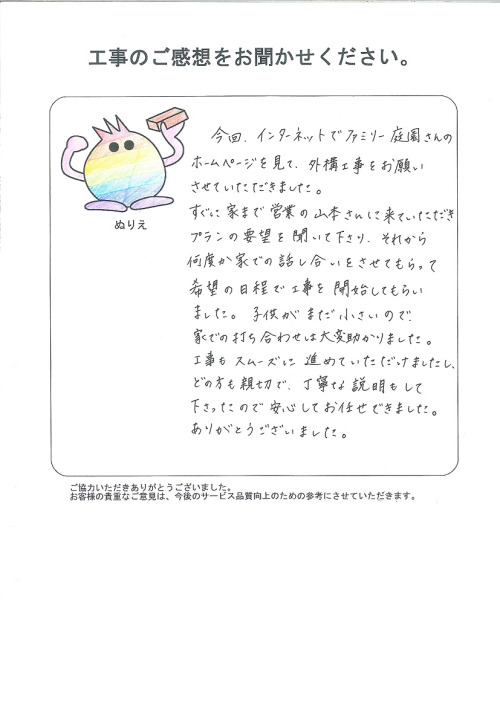 工事のご感想をお聞かせください。
ぬりえ
今回、インターネットでファミリー庭園さんの
ホームページを見て、外構工事をお願い
させていただきました。
すぐに家まで営業の山本さんに来ていただき
プランの要望を聞いて下さり、それから
何度か家での話し合いをさせてもらって
希望の日程で工事を開始してもらい
ました。子供がまだ小さいので、
家での打ち合わせは大変助かりました。
工事もスムーズに進めていただけましたし、
どの方も親切で、丁寧な説明もして
下さったので安心してお任せできました。
ありがとうございました。
ご協力いただきありがとうございました。
お客様の貴重なご意見は、今後のサービス品質向上のための参考にさせていただきます。